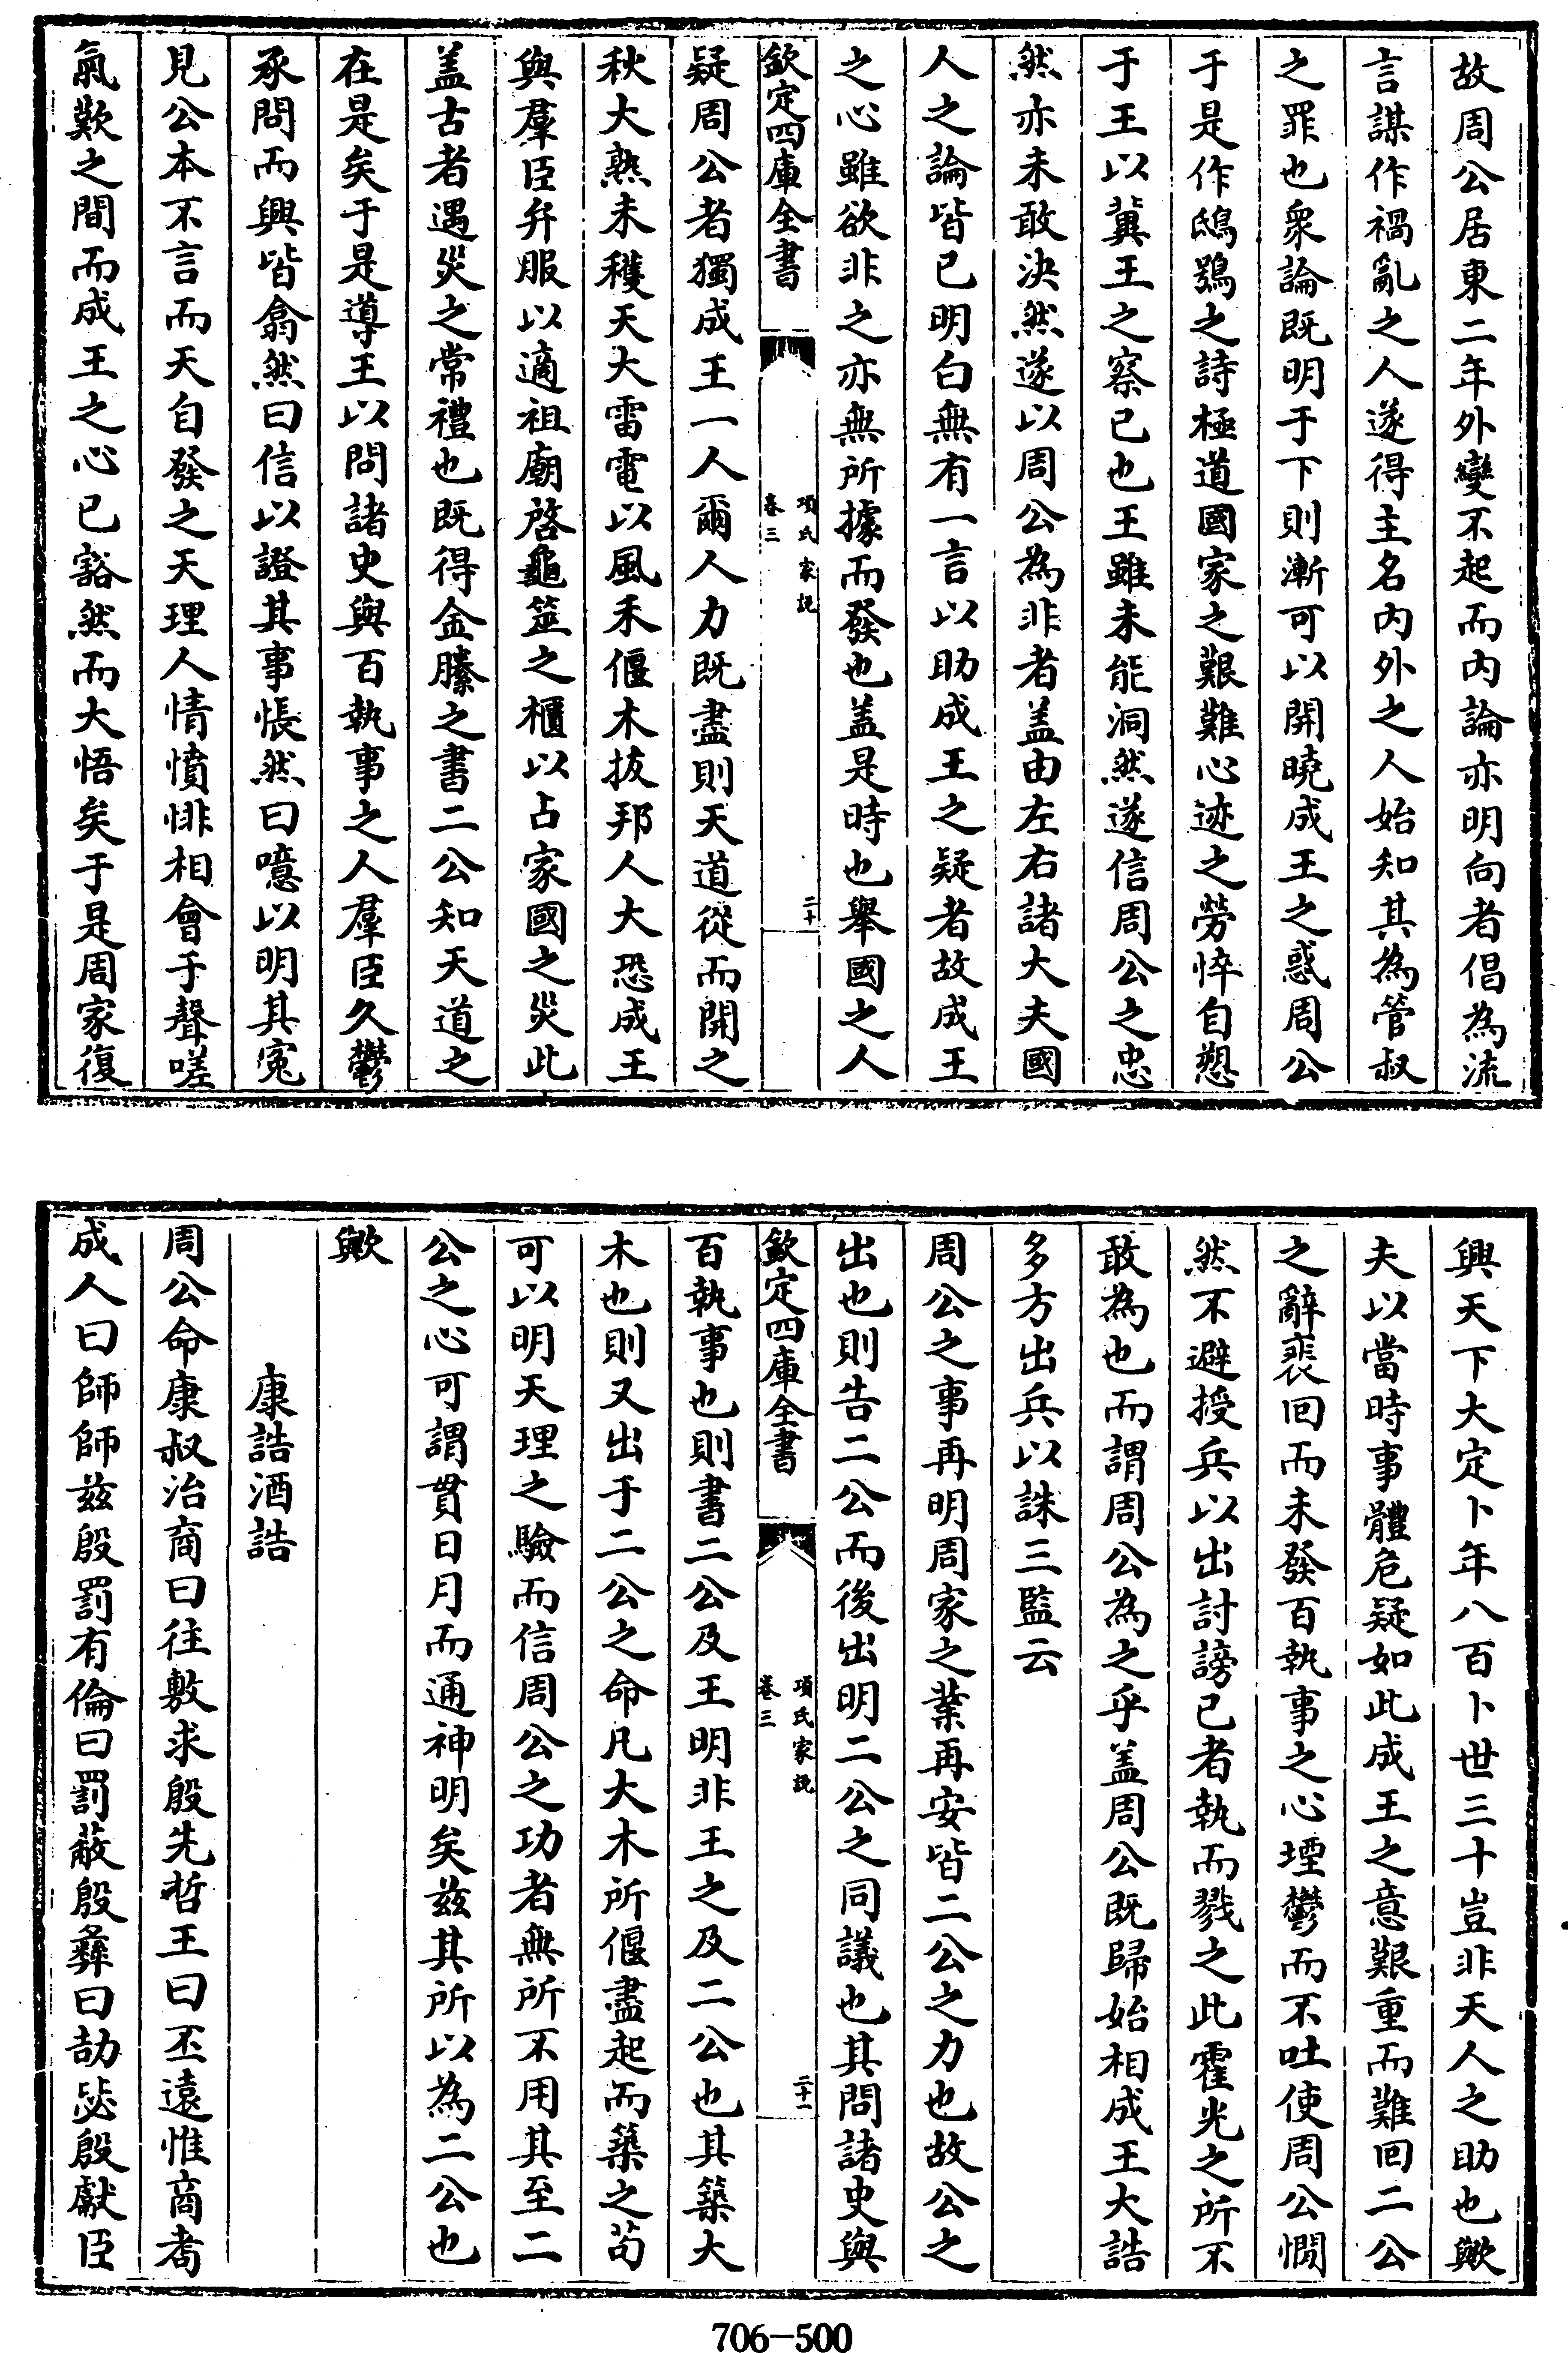 故周公居東二年外變不起而内論亦明向者倡為流
言謀作禍亂之人遂得主名内外之人始知其為管叔
之罪也衆論既明于下則漸可以開曉成王之惑周公
于是作鴟鴞之詩極道國家之艱難心迹之勞悴自愬
于王以兾王之察已也王雖未能洞然遂信周公之忠
然亦未敢決然遂以周公為非者盖由左右諸大夫國
人之論皆已明白無有一言以助成王之疑者故成王
之心雖欲非之亦無所據而發也盖是時也舉國之人
欽定四庫全書
項氏家説
卷三
二十
疑周公者獨成王一人爾人力既盡則天道從而開之
秋大熟未穫天大雷電以風禾偃木拔邦人大恐成王
與羣臣弁服以適祖廟啓龜筮之櫃以占家國之災此
盖古者遇災之常禮也既得金縢之書二公知天道之
在是矣于是導王以問諸史與百執事之人羣臣久鬱
承問而興皆翕然曰信以證其事悵然曰噫以明其寃
見公本不言而天自發之天理人情憤悱相會于聲嗟
氣歎之間而成王之心已豁然而大悟矣于是周家復
興天下大定卜年八百卜世三十豈非天人之助也歟
夫以當時事體危疑如此成王之意艱重而難回二公
之辭裴回而未發百執事之心堙鬱而不吐使周公憪
然不避授兵以出討謗已者執而戮之此霍光之所不
敢為也而謂周公為之乎盖周公既歸始相成王大誥
多方出兵以誅三監云
周公之事再明周家之業再安皆二公之力也故公之
出也則告二公而後出明二公之同議也其問諸史與
欽定四庫全書
項氏家説
卷三
二十一
百執事也則書二公及王明非王之及二公也其築大
木也則又出于二公之命凡大木所偃盡起而築之苟
可以明天理之驗而信周公之功者無所不用其至二
公之心可謂貫日月而通神明矣兹其所以為二公也
歟
康誥酒誥
周公命康叔治商曰往敷求殷先哲王曰丕遠惟商耉
成人曰師師兹殷罰有倫曰罰蔽殷彝曰劼毖殷獻臣
706-500